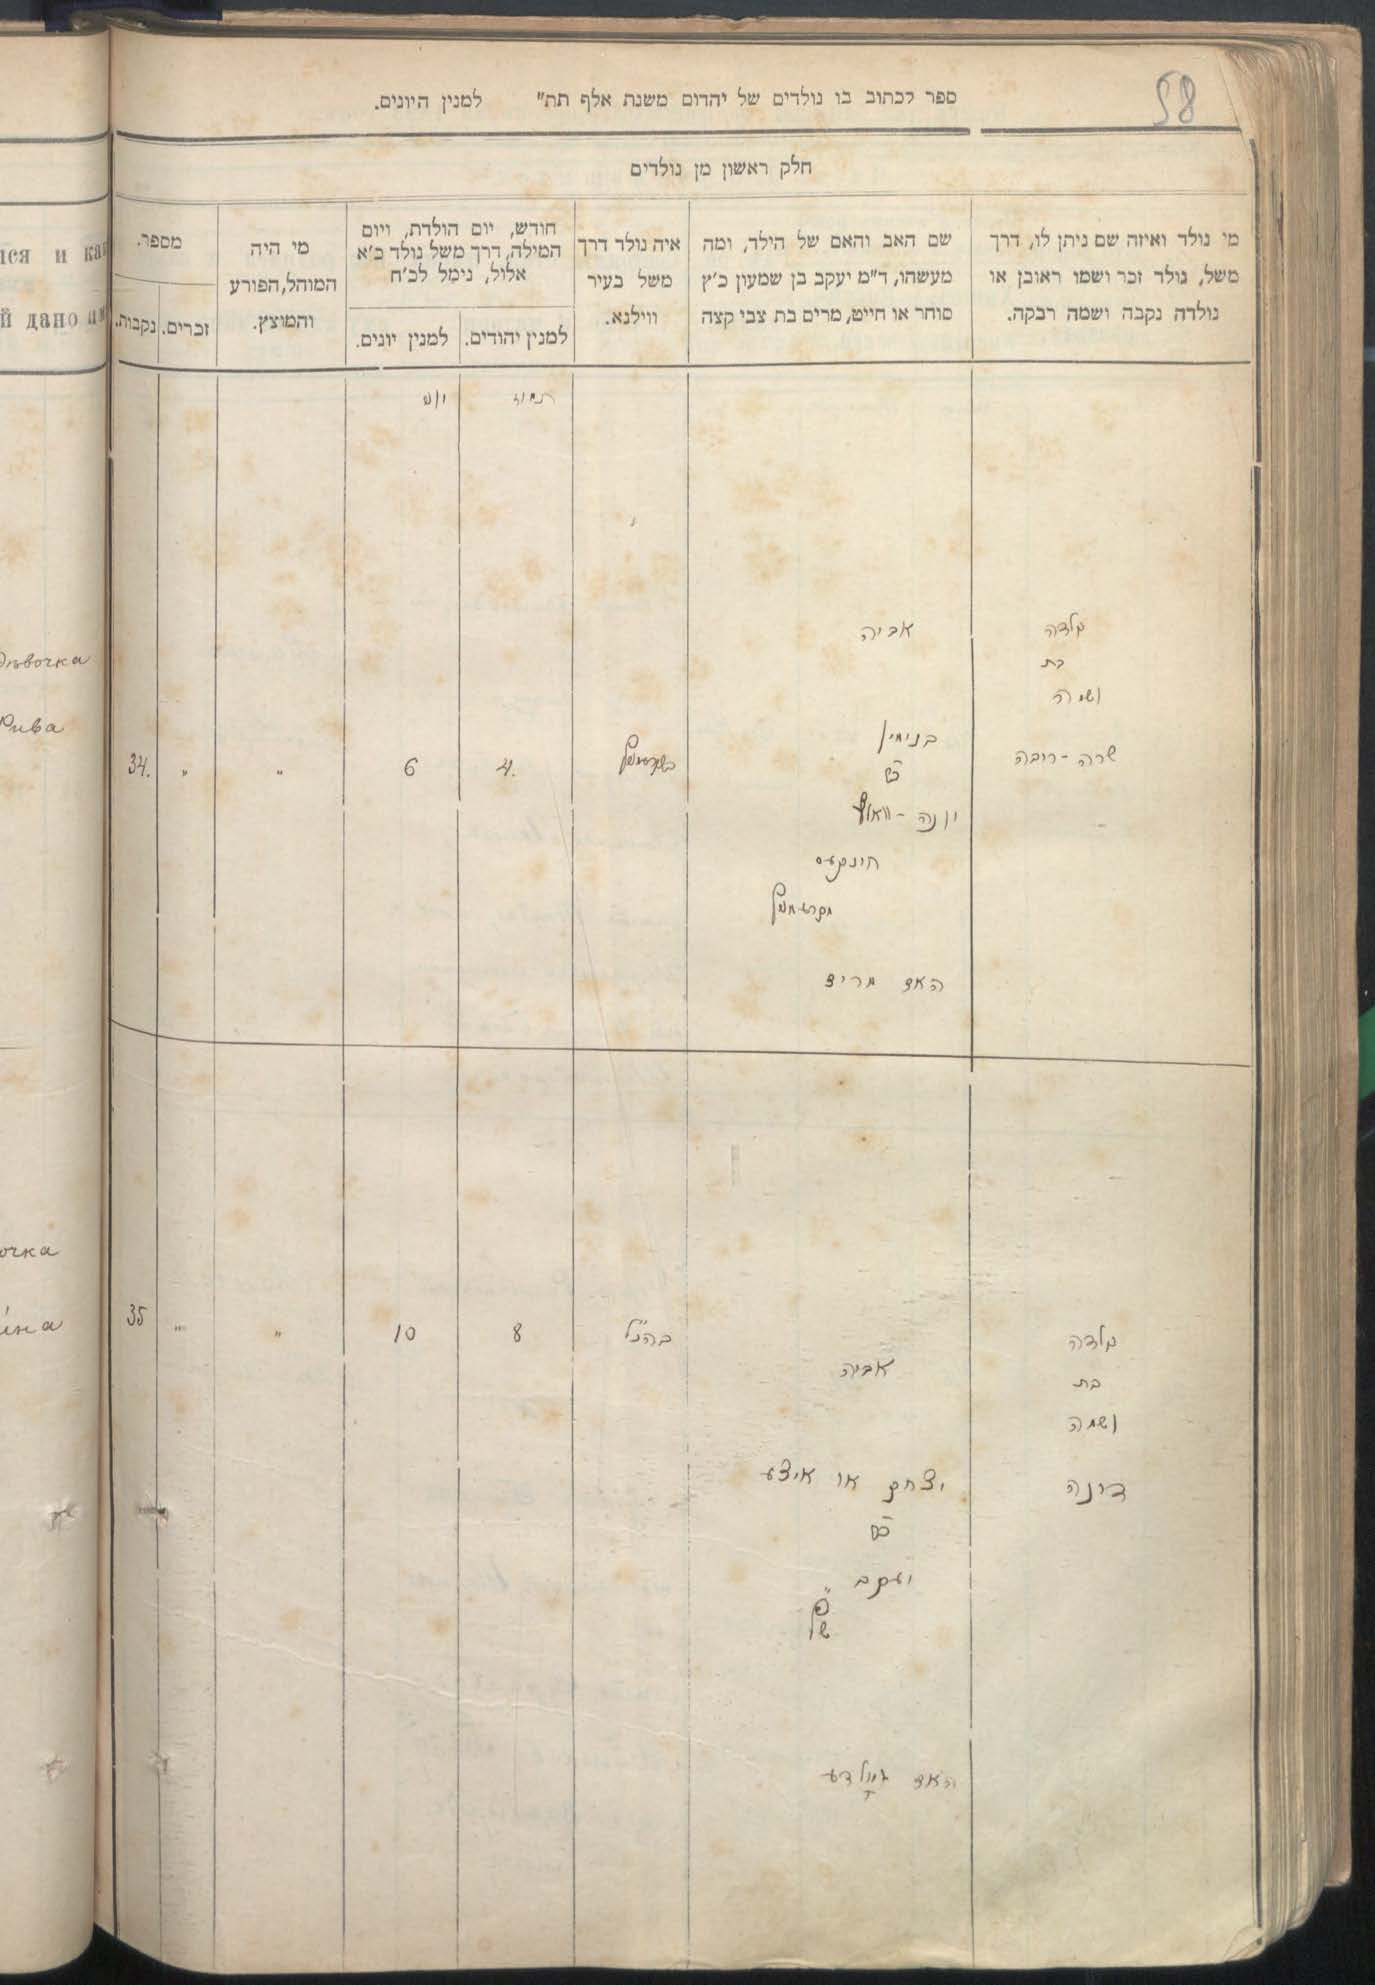 58
ספר לכתוב בו נולדים של יהדום משנת אלף תת" למנין היונים.
חלק ראשון מן נולדים
מי נולד ואיזה שם ניתן לו, דרך
משל, נולד זכר ושמו ראובן או
נולדה נקבה ושמה רבקה.
שם האב והאם של הילד, ומה
מעשהו, ד"מ יעקב בן שמעון כ"ץ
סוחר או חייט, מרים בת צבי קצה
איה נולד דרך
משל בעיר
ווילנא.
חודש, יום הולדת, ויום
המילה, דרך משל נולד כ'א
אלול, נימל לכ'ח
למנין יהודים.
למנין יונים.
מי היה
המוהל, הפורע
והמוצץ.
מספר.
זכרים.
נקבות.
лся и как
й дано им
תמוז
יוני
дѣвочка
Рива
נולדה
בת
ושמה
שרה-ריבה
אביה
בנימין
יונה-וואלף
האם מרים
4.
6
"
"
34.
очка
נולדה
בת
ושמה
דינה
אביה
יצחק או איצע
יעקב
האם
בהנ"ל
8
10
"
"
35